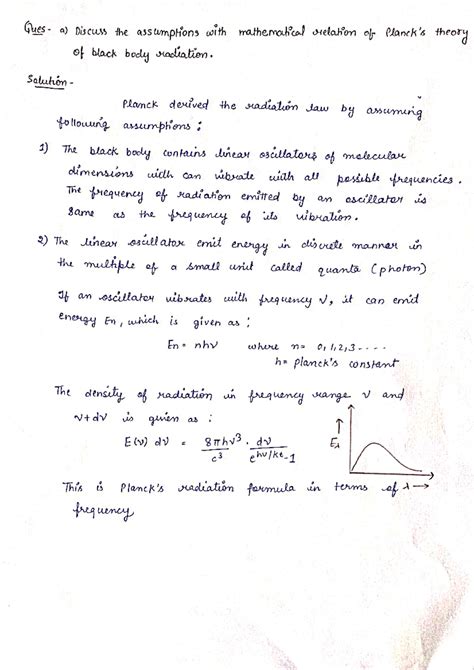 Ques - a) Discuss the assumptions with mathematical relation of Planck's theory
of black body radiation.
Solution -
Planck derived the radiation law by assuming
following assumptions :
1) The black body contains linear oscillators of molecular
dimensions widh can vibrate with all possible frequencies.
The frequency of radiation emitted by an oscillator is
Same as the frequency of its vibration.
2) The linear oscillator emit energy in discrete manner in
the multiple of a small unit called quanta (photon)
If an oscillator vibrates with frequency ν, it can emid
energy En, which is given as ;
En = nhν where n= 0,1,2,3 ....
h= planck's constant
The density of radiation in frequency range ν and
ν+dν is given as :
E(ν) dν = 8πhν³/c³ . dν/e^hν/kt-1
Eλ
λ →
This is Planck's radiation formula in terms of
frequency